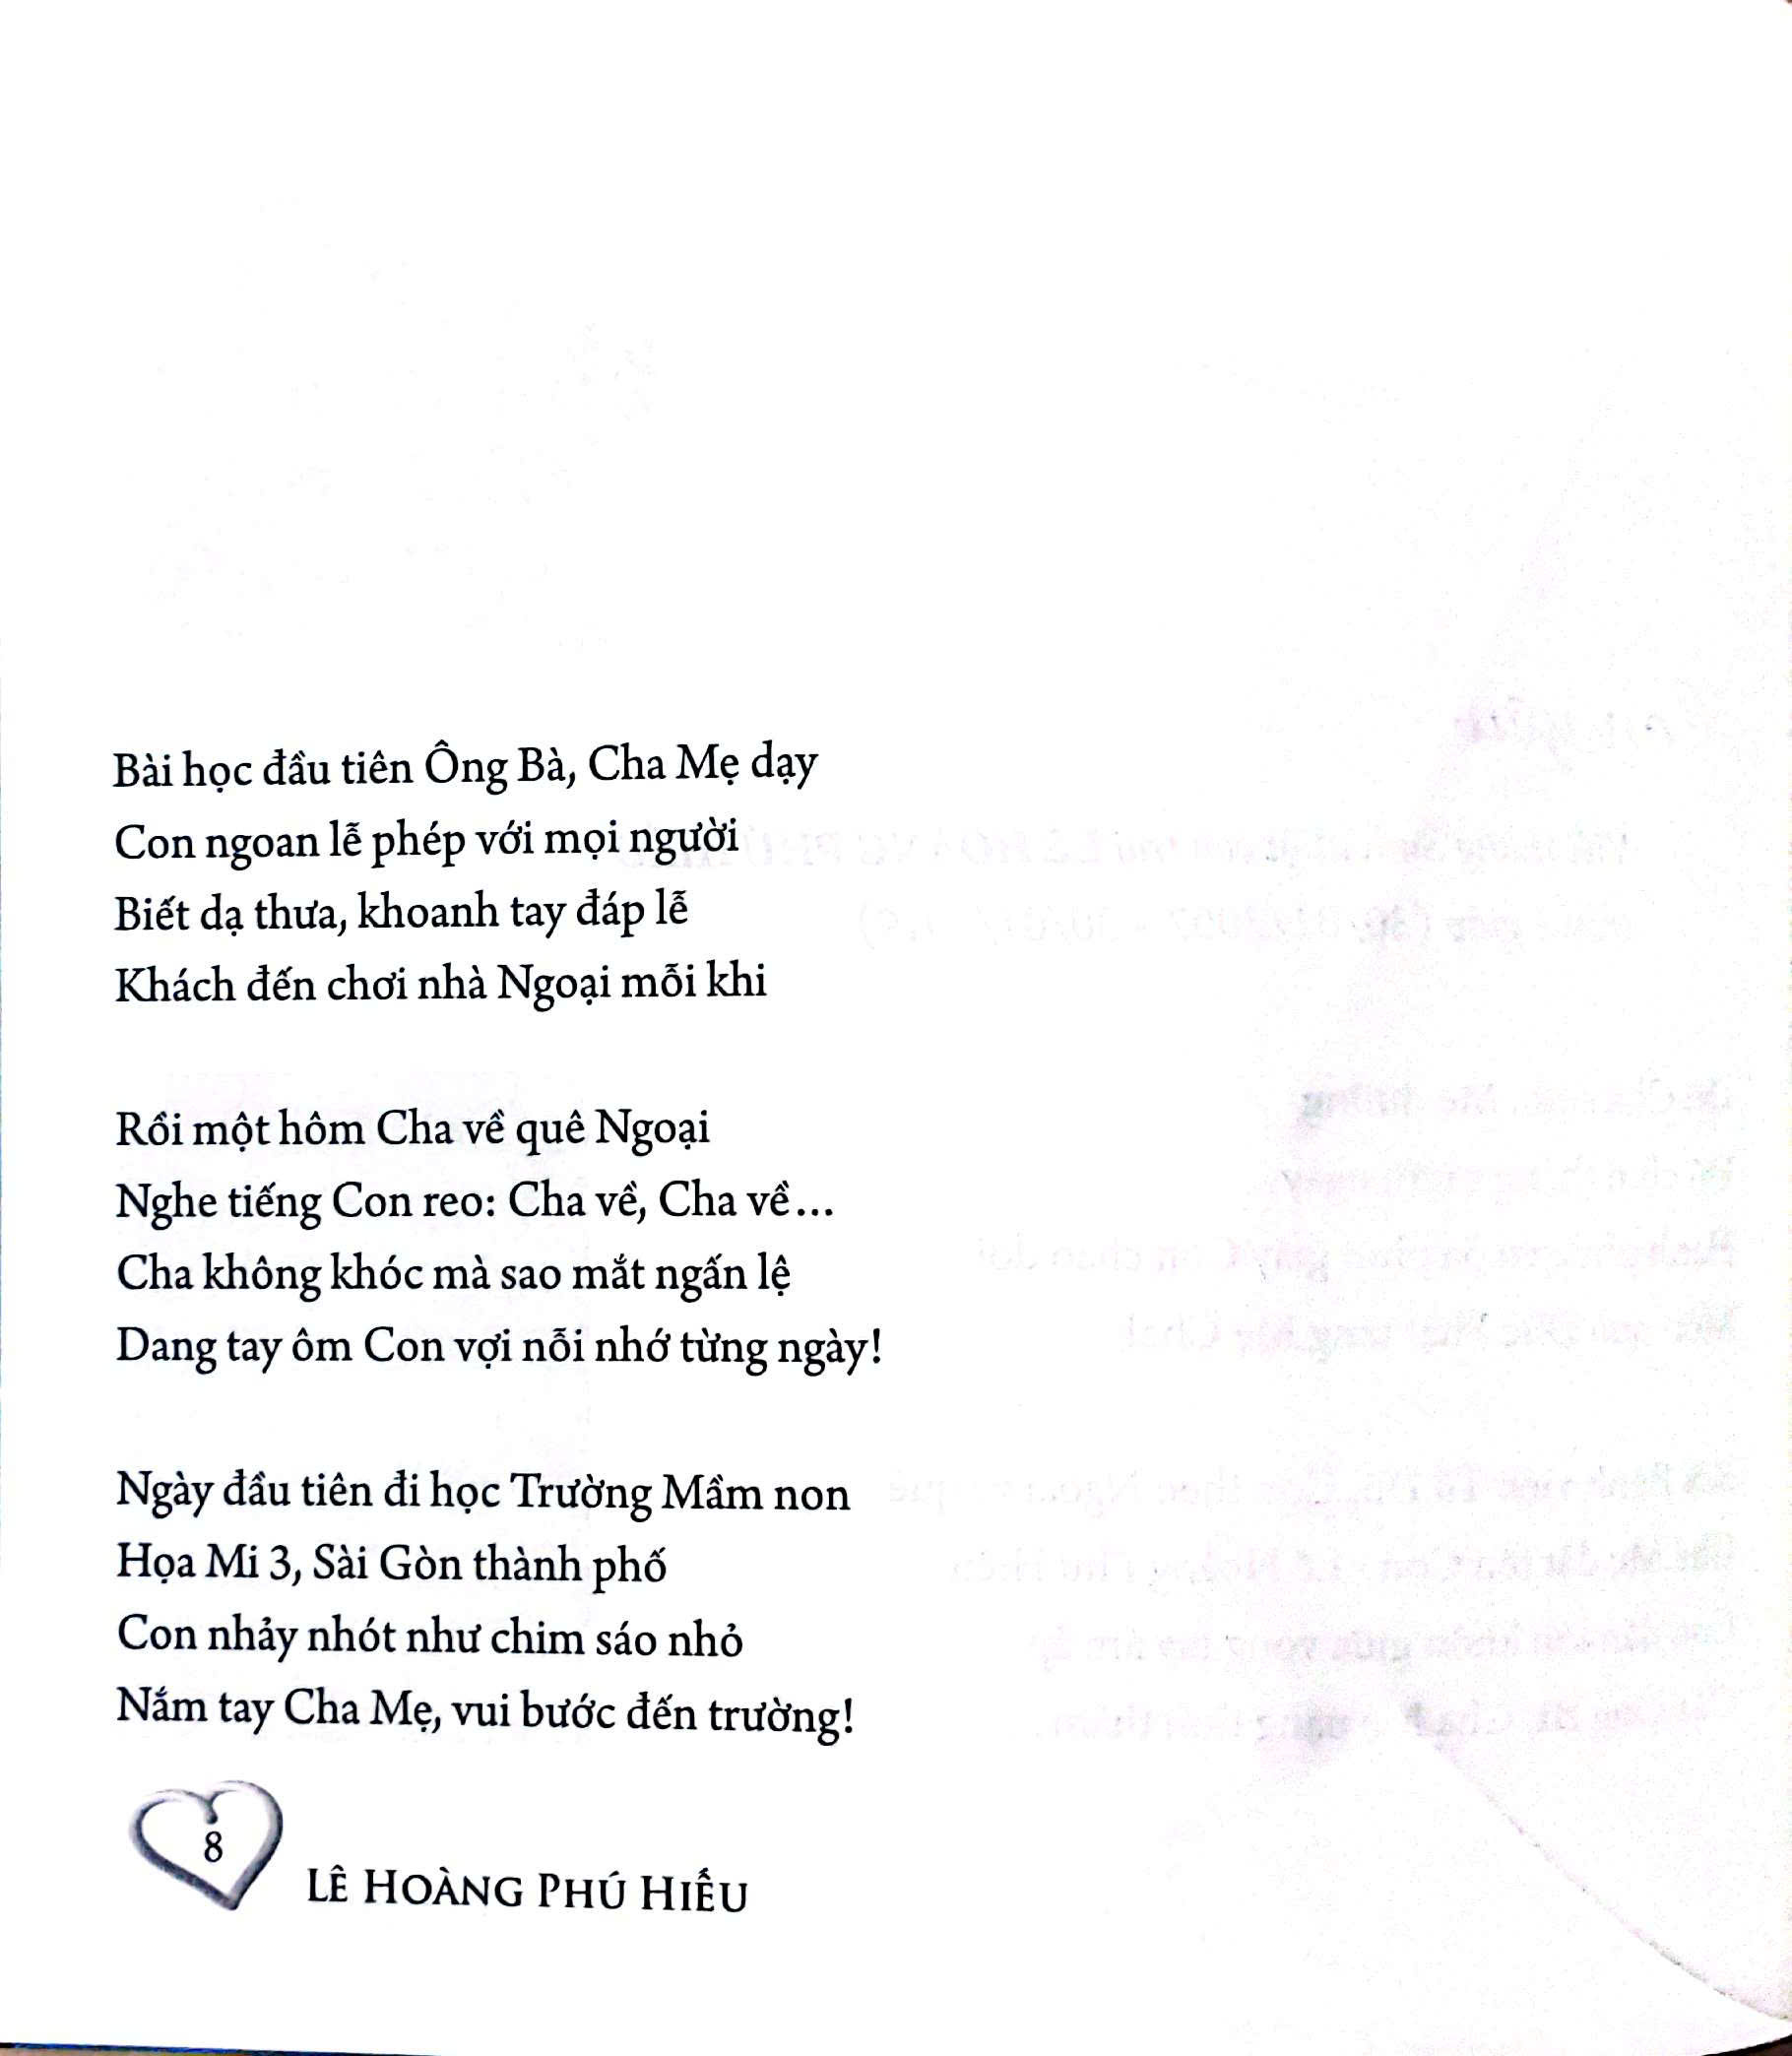 Bài học đầu tiên Ông Bà, Cha Mẹ dạy
Con ngoan lễ phép với mọi người
Biết dạ thưa, khoanh tay đáp lễ
Khách đến chơi nhà Ngoại mỗi khi
Rồi một hôm Cha về quê Ngoại
Nghe tiếng Con reo: Cha về, Cha về...
Cha không khóc mà sao mắt ngấn lệ
Dang tay ôm Con vợi nỗi nhớ từng ngày!
Ngày đầu tiên đi học Trường Mầm non
Họa Mi 3, Sài Gòn thành phố
Con nhảy nhót như chim sáo nhỏ
Nắm tay Cha Mẹ, vui bước đến trường!
8
LÊ HOÀNG PHÚ HIẾU